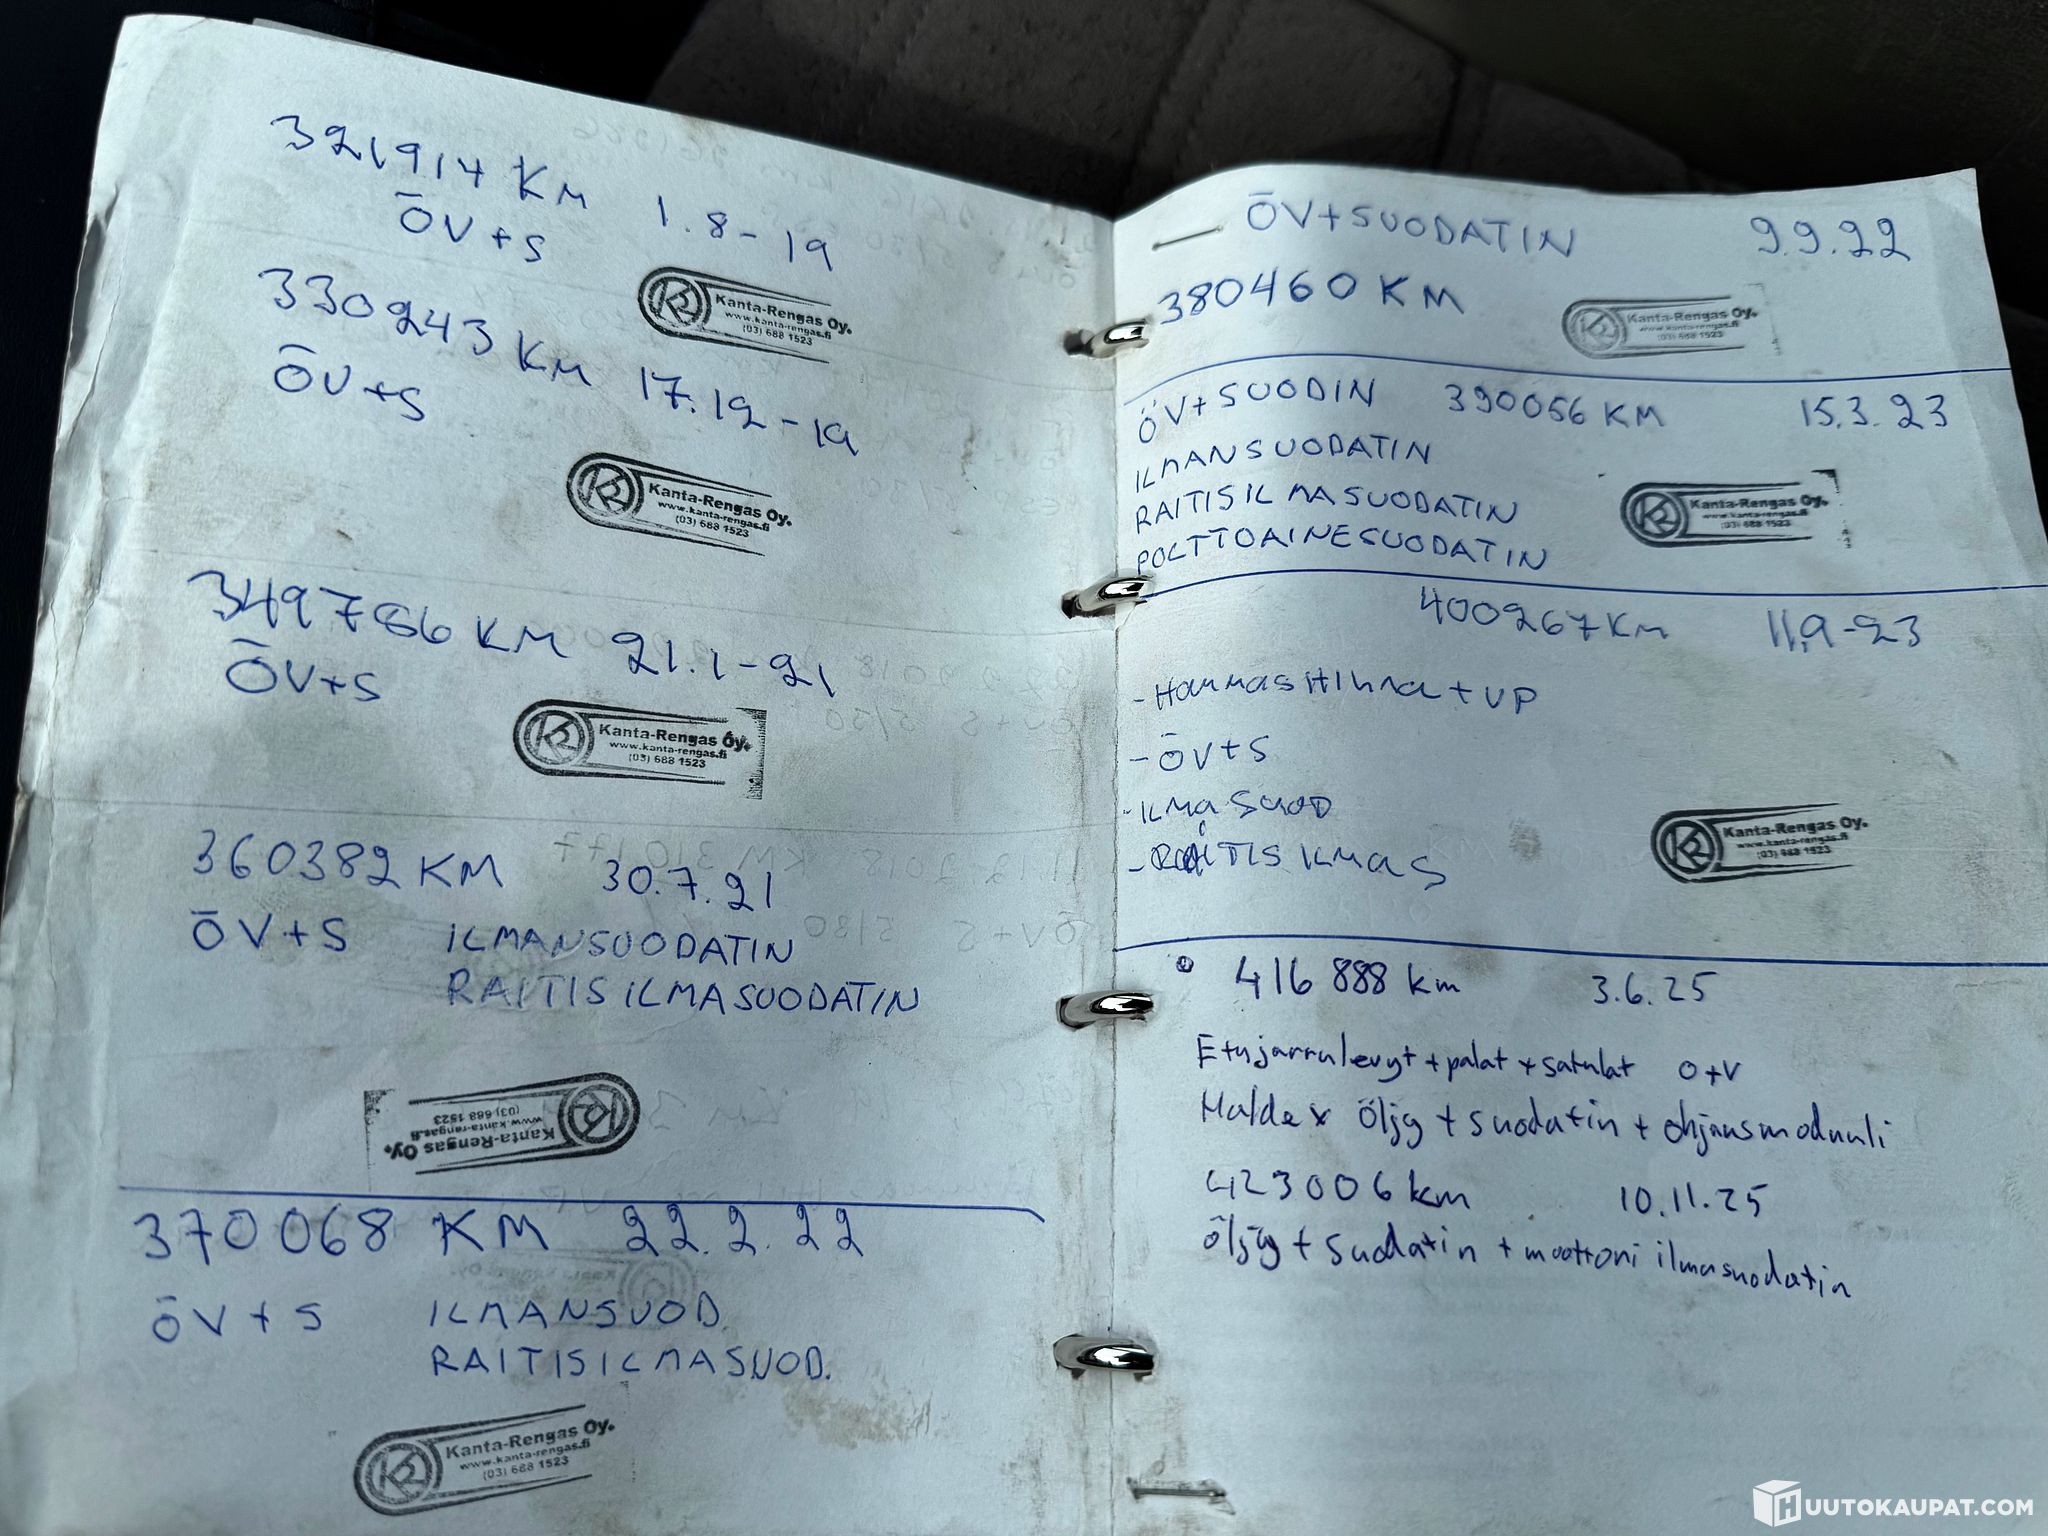 321914 KM 1.8-19
ÖV+S
Kanta-Rengas Oy.
www.kanta-rengas.fi
(03) 688 1523
330243 KM 17.12-19
ÖV+S
Kanta-Rengas Oy.
www.kanta-rengas.fi
(03) 688 1523
349786 KM 21.1-21
ÖV+S
Kanta-Rengas Oy.
www.kanta-rengas.fi
(03) 688 1523
360382 KM 30.7.21
ÖV+S ILMANSUODATIN
RAITISILMASUODATIN
Kanta-Rengas Oy.
www.kanta-rengas.fi
(03) 688 1523
370068 KM 22.2.22
ÖV+S ILMANSUOD.
RAITISILMASUOD.
Kanta-Rengas Oy.
www.kanta-rengas.fi
(03) 688 1523
ÖV+SUODATIN 9.9.22
380460 KM
Kanta-Rengas Oy.
www.kanta-rengas.fi
(03) 688 1523
ÖV+SUODIN 390056 KM 15.3.23
ILMANSUODATIN
RAITISILMASUODATIN
POLTTOAINESUODATIN
Kanta-Rengas Oy.
www.kanta-rengas.fi
(03) 688 1523
400267 KM 11.9-23
- HAMMASHIHNA + VP
- ÖV+S
- ILMA SUOD
- RAITIS ILMAS
Kanta-Rengas Oy.
www.kanta-rengas.fi
(03) 688 1523
416 888 km 3.6.25
Etujarrulevyt + palat + satulat O+V
Haldex öljy + suodatin + ohjausmoduuli
423006 km 10.11.25
öljy + suodatin + moottori ilmasuodatin
HUUTOKAUPAT.COM